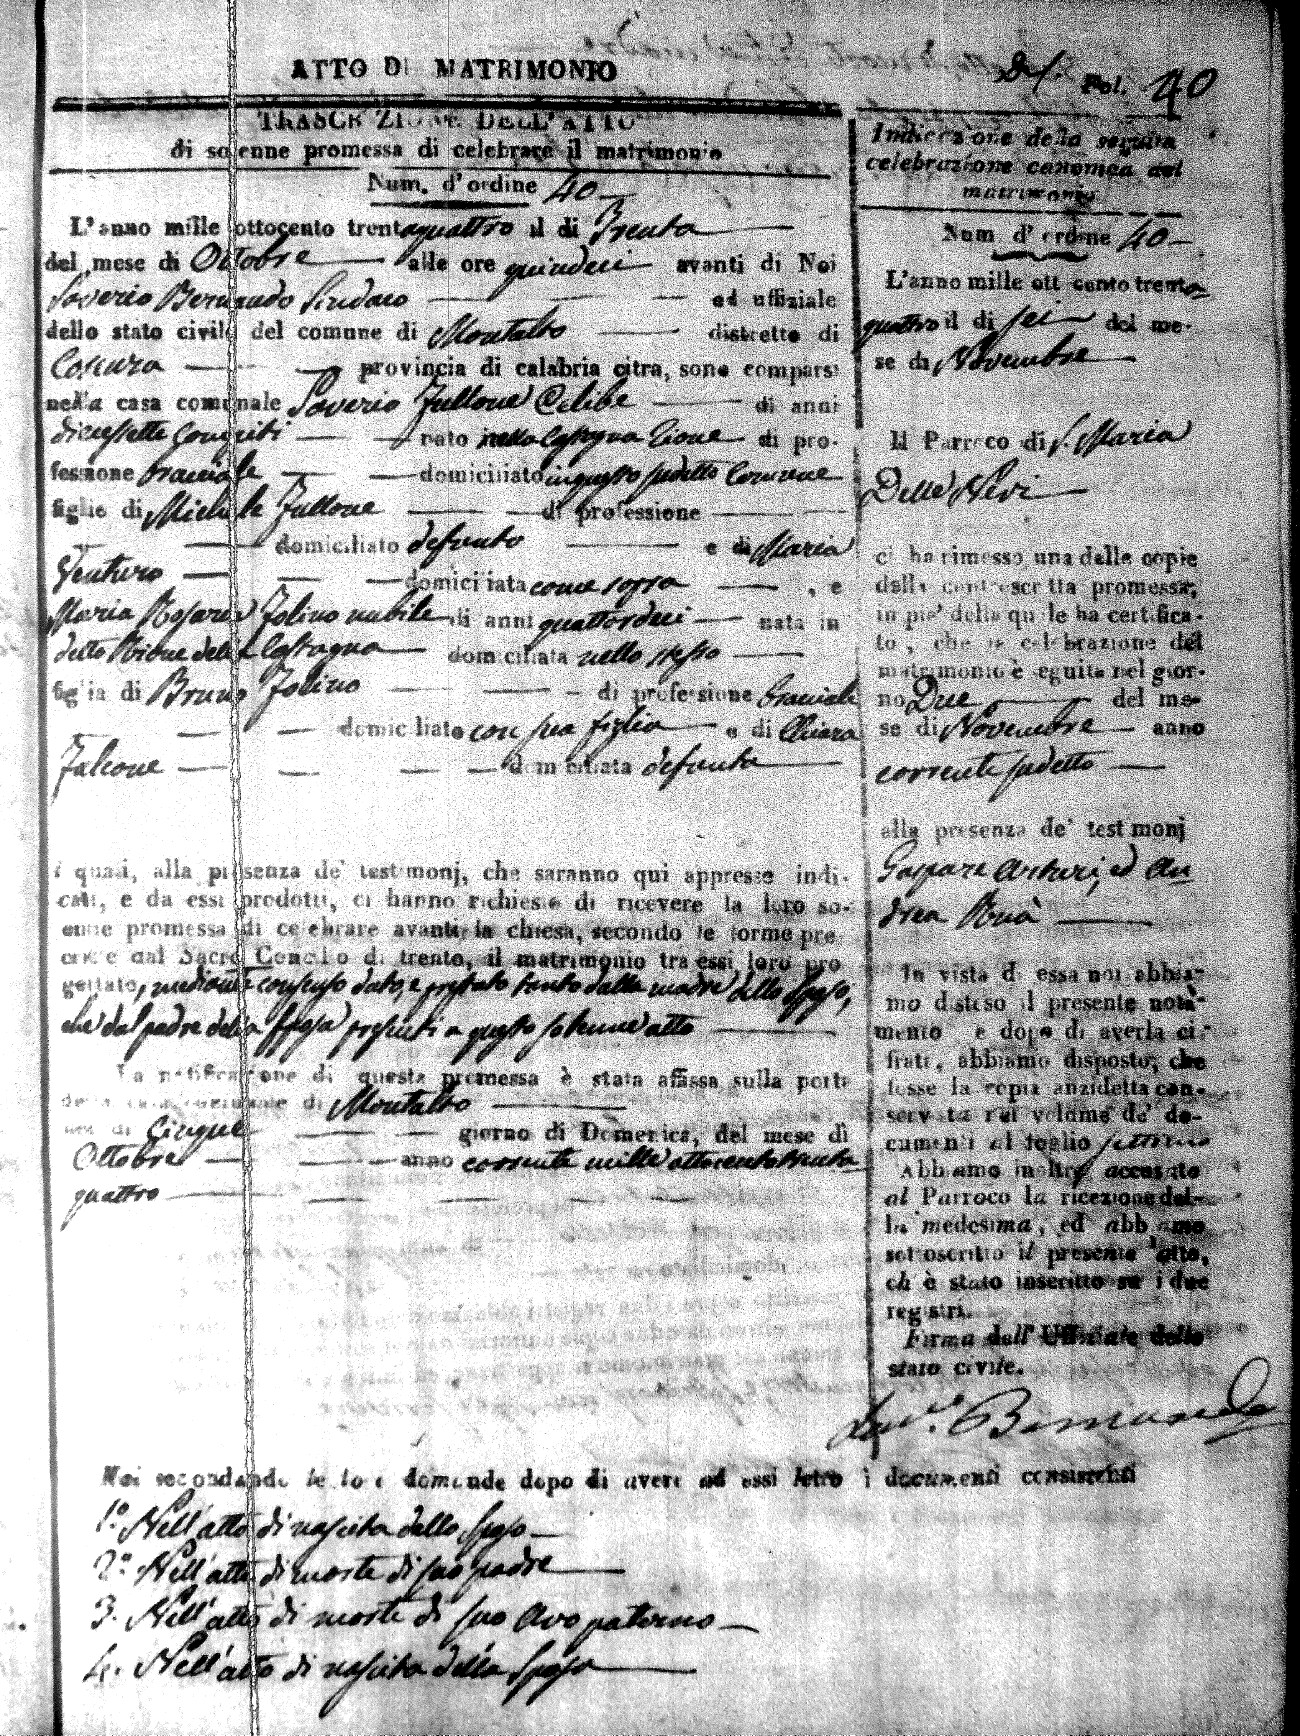 ATTO DI MATRIMONIO
Fol. 40
TRASCRIZIONE DELL'ATTO
di solenne promessa di celebrare il matrimonio
Num. d'ordine 40
L'anno mille ottocento trentaquattro il di Trenta
del mese di Ottobre alle ore quindeci avanti di Noi
Saverio Bernardo Sindaco ed uffiziale
dello stato civile del comune di Montalto distretto di
Cosenza provincia di calabria citra, sono comparsi
nella casa comunale Saverio Fullone Celibe di anni
diciessette compiti nato di pro-
fessione bracciale domiciliato in questo sudetto Comune
figlio di Michele Fullone di professione
domiciliato defunto e di Maria
Venturo domiciliata come sopra , e
Maria Rosaria Folino nubile di anni quattordeci nata in
detto Rione della Castagna domiciliata nello stesso
figlia di Bruno Folino di professione bracciale
domiciliato con sua figlia e di Chiara
Falcone domiciliata defunta
i quali, alla presenza de' testimonj, che saranno qui appresso indi-
cati, e da essi prodotti, ci hanno richiesto di ricevere la loro so-
enne promessa di celebrare avanti la chiesa, secondo le forme pre
dal Sacro Concilio di trento, il matrimonio tra essi loro pro
gettato, mediante consenso dato, e prestato tanto dalla madre dello Sposo,
che dal padre della Sposa presenti a questo solenne atto
La notificazione di questa promessa è stata affissa sulla porta
della casa comunale di Montalto
di Cinque giorno di Domenica, del mese di
Ottobre anno corrente mille ottocento trenta
quattro
Indicazione della seguita
celebrazione canonica del
matrimonio
Num d'ordine 40
L'anno mille ottocento trenta
quattro il di sei del me-
se di Novembre
Il Parroco di S. Maria
Delle Nevi
ci ha rimesso una delle copie
della controscritta promessa;
in piè della quale ha certifica-
to, che la celebrazione del
matrimonio è seguita nel gior-
no Due del me-
se di Novembre anno
corrente sudetto
alla presenza de' testimonj
Gaspare Arturi, ed An
drea Ruà
In vista di essa noi abbia-
mo disteso il presente nota-
mento e dopo di averla ci-
frata, abbiamo disposto, che
fosse la copia anzidetta con-
servata nel volume de' do-
cumenti al foglio settimo
Abbiamo inoltre accusato
al Parroco la ricezione del-
la medesima, ed abbiamo
sottoscritto il presente atto,
ch'è stato inscritto su i due
registri.
Firma dell'Uffiziale dello
stato civile.
Sav.o Bernardo
Noi secondando le loro domande dopo di avere ad essi letto i documenti consistenti
1.º Nell'atto di nascita dello Sposo
2.º Nell'atto di morte di suo padre
3. Nell'atto di morte di suo Avo paterno
4. Nell'atto di nascita della Sposa